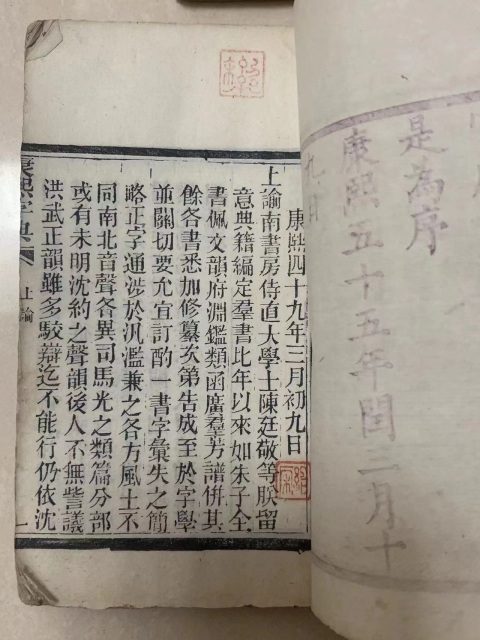 是為序
康熙五十五年閏三月十
九日
康熙四十九年三月初九日
上諭南書房侍直大學士陳廷敬等朕留
意典籍編定羣書比年以來如朱子全
書佩文韻府淵鑑類函廣羣芳譜併其
餘各書悉加修纂次第告成至於字學
並關切要允宜訂酌一書字彙失之簡
略正字通涉於汎濫兼之各方風土不
同南北音聲各異司馬光之類篇分部
或有未明沈約之聲韻後人不無訾議
洪武正韻雖多駮辯迄不能行仍依沈
康熙字典 上諭 一